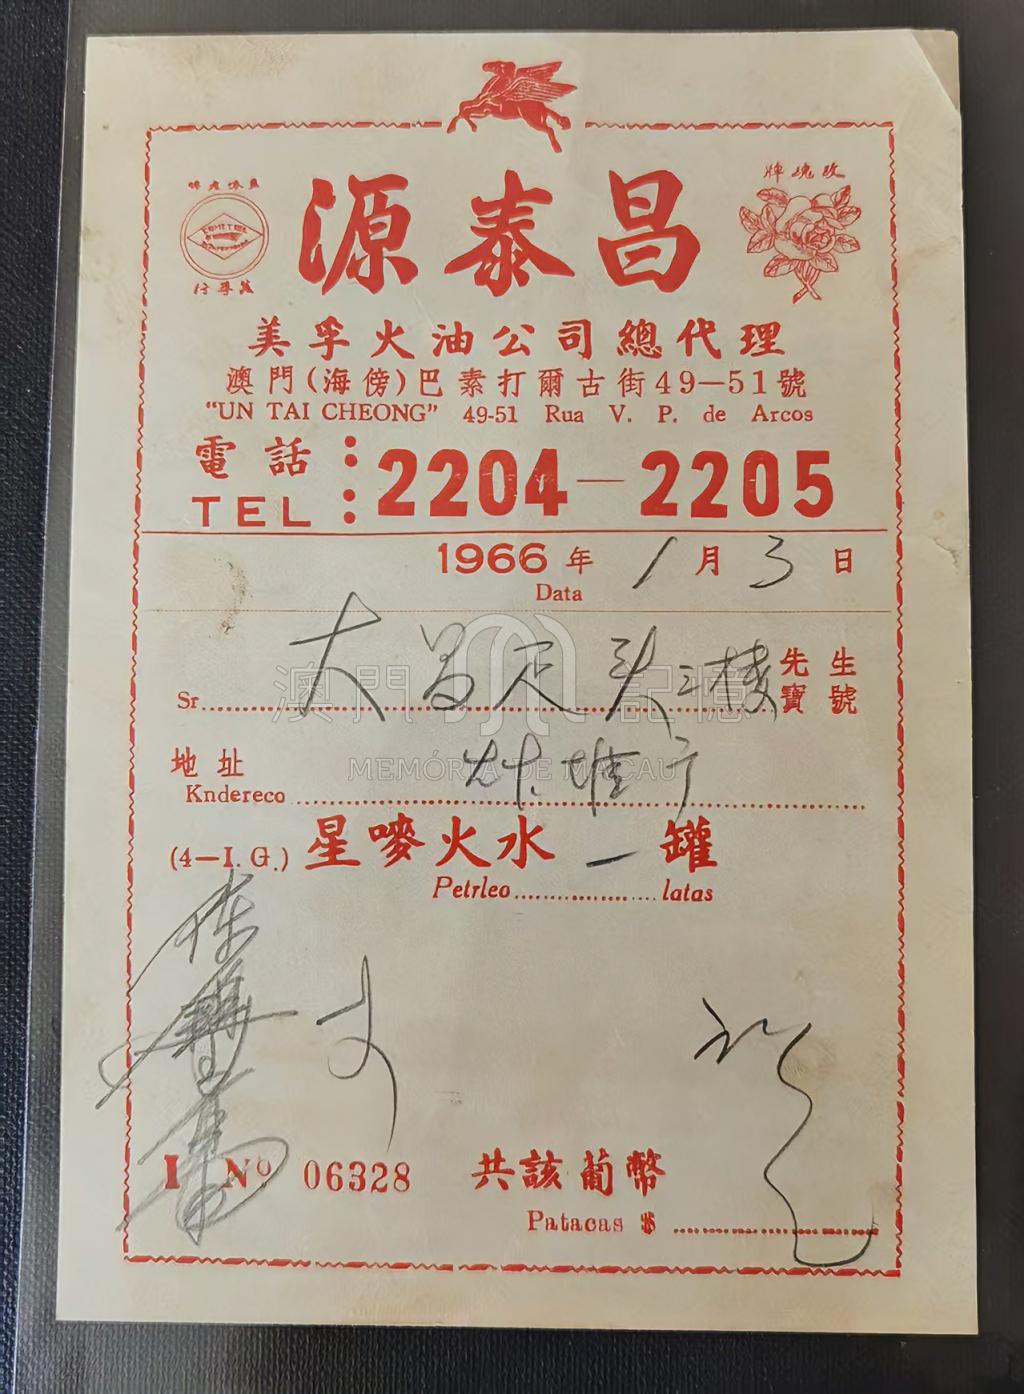 源泰昌
玫瑰牌
美孚火油公司總代理
澳門(海傍)巴素打爾古街49—51號
"UN TAI CHEONG" 49-51 Rua V. P. de Arcos
電話
TEL : 2204—2205
1966年 1月 3日
Data
大昌 头三楼 先生
Sr 寶號
澳門記憶
MEMÓRIA DE MACAU
地址
Kndereco
(4—I. G.) 星嘜火水 一 罐
Petrleo latas
I Nº 06328 共該葡幣
Patacas $